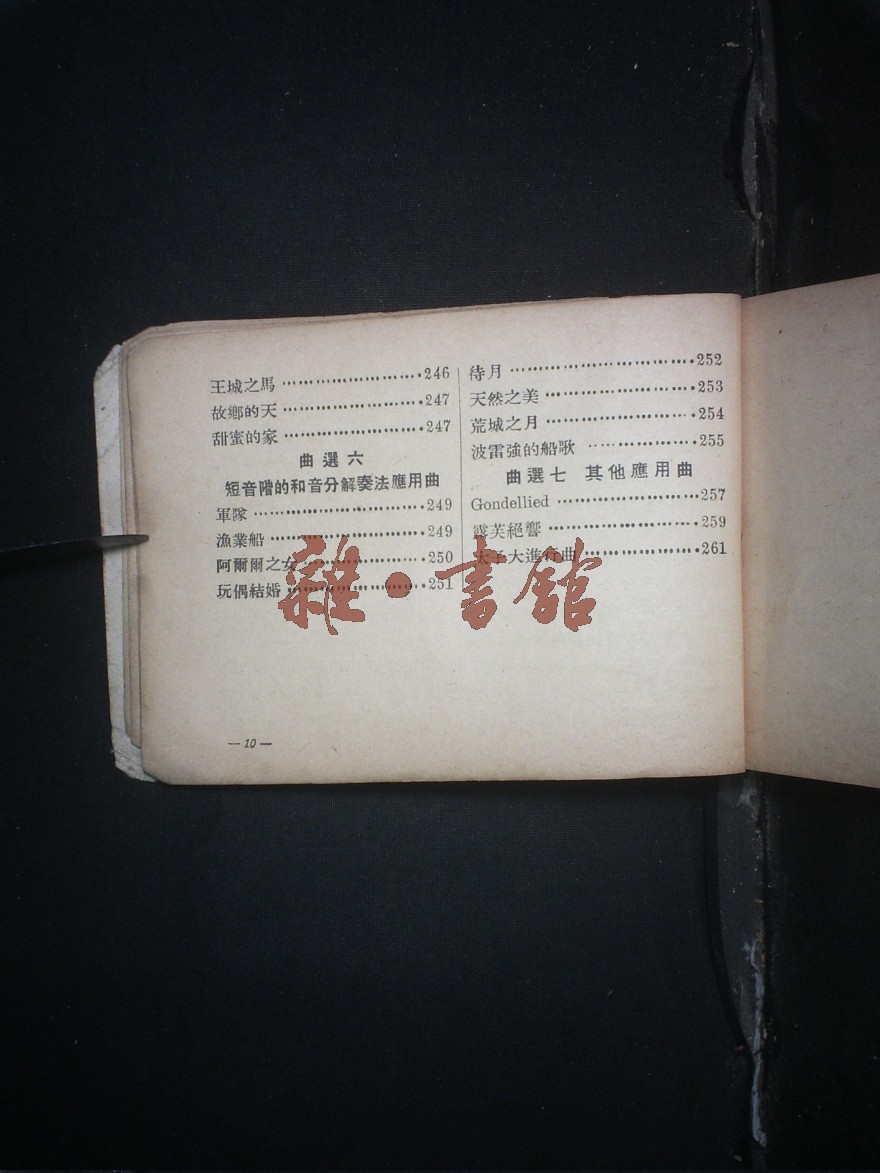 王城之馬 ……………………246
故鄉的天 ……………………247
甜蜜的家 ……………………247
曲選六
短音階的和音分解奏法應用曲
軍隊 …………………………249
漁業船 ………………………249
阿爾爾之女 …………………250
玩偶結婚 ……………………251
待月 …………………………252
天然之美 ……………………253
荒城之月 ……………………254
波雷強的船歌 ………………255
曲選七 其他應用曲
Gondellied ……………………257
芙絕響 ……………………259
太子大進行曲 ………………261
—10—
雜·書館